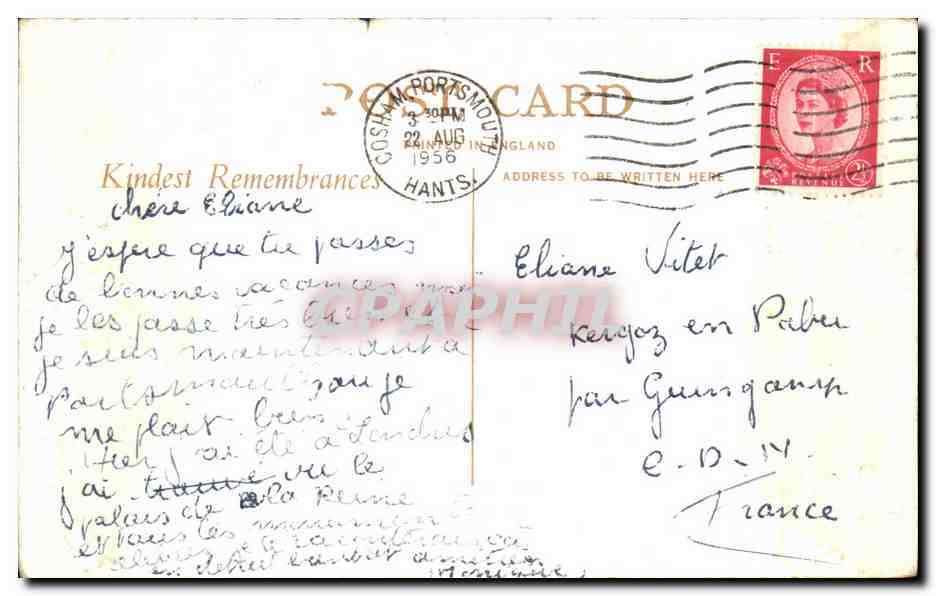 POST CARD
COSHAM. PORTSMOUTH
3 30 PM
22 AUG
1956
HANTS.
PRINTED IN ENGLAND
Kindest Remembrances
ADDRESS TO BE WRITTEN HERE
E R
REVENUE 2½
chère Eliane
j'espère que tu passes
de bonnes vacances moi
je les passe très bien
je suis maintenant à
Portsmouth ou je
me plait bien
Hier j'ai été à Londres
j'ai trouvé vu le
palais de la Reine
et tous les monuments
Monique
Eliane Vitet
Kergoz en Pabu
par Guingamp
C-D-N.
France
CPAPHIL